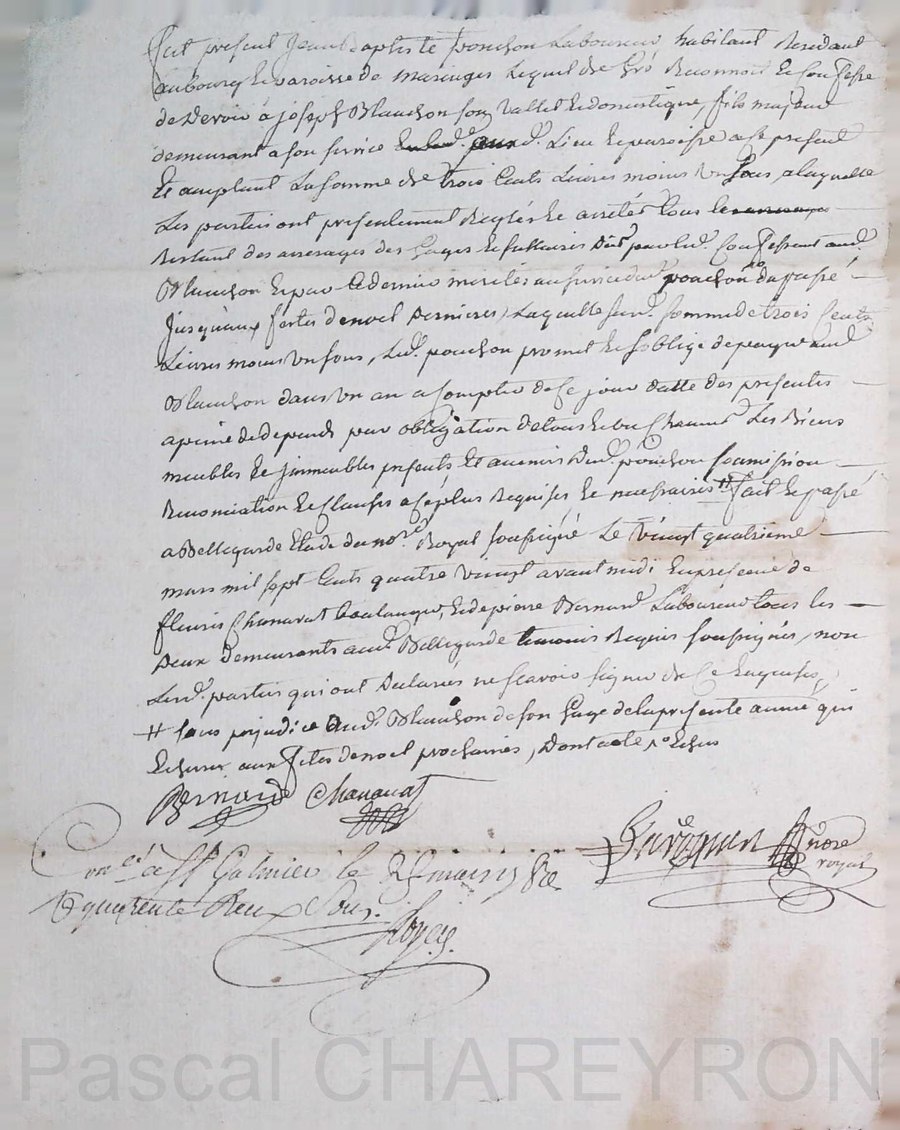 fut present Jean Baptiste ponchon Laboureur habitant Residant
au bourg Et paroisse de maringes Lequel de Gré Reconnoit Et Confesse
de Devoir à joseph Blanchon son Vallet Et domestique, fils majeur
demeurant a son service aud. Lieu Et paroisse a ce present
Et acceptant La somme de trois Cents Livres moins Un sous, a laquelle
Les parties ont presentement Reglés Et arrétés tous les
Restant des arrerages des Gages Et sallaires par Led. aud.
Blanchon Et par Ce dernier mérités au service dud. ponchon du passé
jusqu'aux fettes de noel Dernieres, Laquelle susd. somme de trois Cents
Livres moins Un sous, Led. ponchon promet Et s'oblige de payer aud.
Blanchon dans Un an a Compter de Ce jour datte des presentes
a peine de depends par obligation de tous Et Un Chacun Les Biens
meubles Et immeubles presents Et avenirs dud. ponchon soumission
Renonciation Et Clauses a Ce plus Requises Et necessaires # fait Et passé
a Bellegarde Etude du nore. Royal soussigné Le Vingt quatrieme
mars mil sept Cents quatre Vingt avant midi En presence de
fleuris Chanavat boulanger, Et de pierre Bernard Laboureur tous les
Deux demeurants aud. Bellegarde temoins Requis soussignés, non
Lesd. parties qui ont Declarés ne scavoir signer de Ce Enquises,
# sans prejudice aud. Blanchon de son Gage de la presente année qui
Echerra aux fêtes de noel prochaines, Dont acte
Bernard Chanavat
nore royal
Conlé. a St Galmier le mars 1780
quarente Deux Sous.